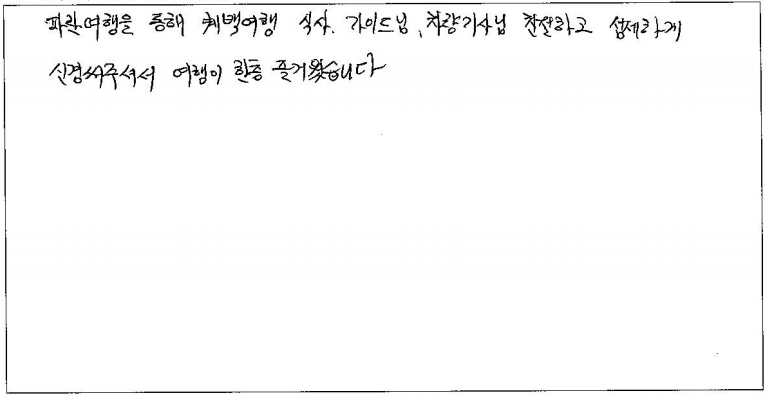 파란여행을 통해 퀘백여행 식사, 가이드님, 차량기사님 친절하고 섬세하게
신경써주셔서 여행이 한층 즐거웠습니다